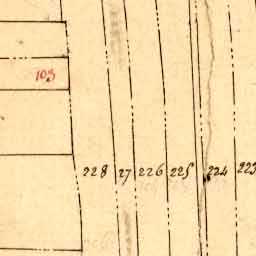 103
228 27 226 225 224 223